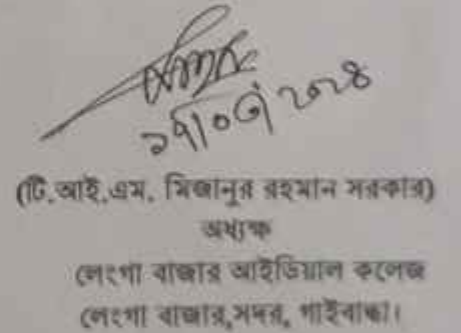 (টি.আই.এম. মিজানুর রহমান সরকার)
অধ্যক্ষ
লেংগা বাজার আইডিয়াল কলেজ
লেংগা বাজার,সদর, গাইবান্ধা।